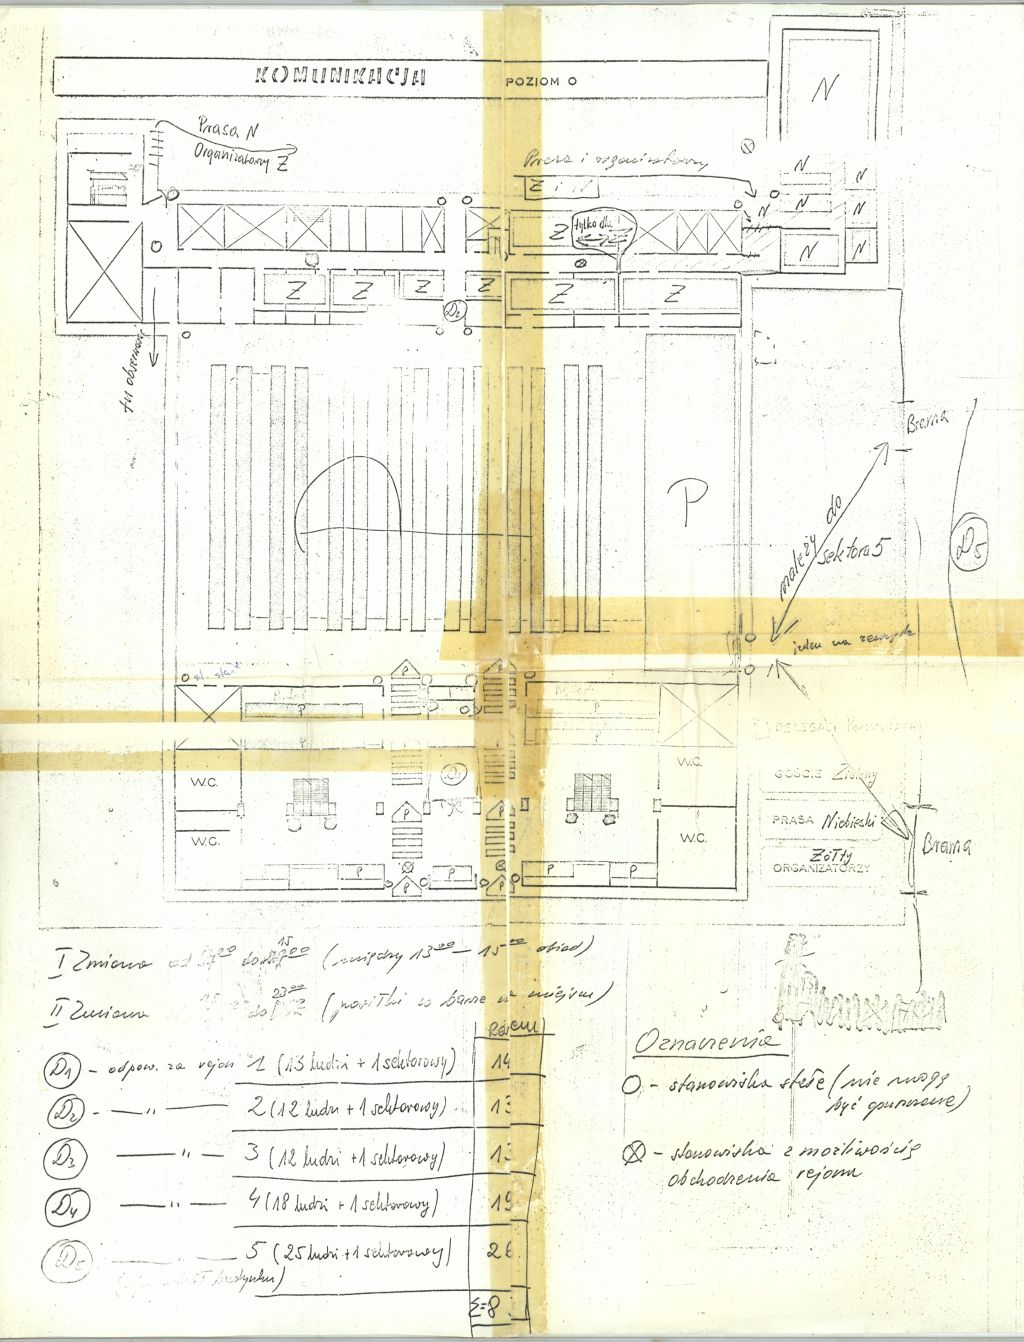 KOMUNIKACJA
POZIOM O
N
Prasa N
Organizatorzy Z
Prasa i organizatorzy
Z i N
N
N
N
N
N
N
N
N
Z
tylko dla
Z
Z
Z
Z
Z
Z
D2
tu obserwować
Brama
P
należy do
sektora 5
D5
jeden na zewnątrz
st. stał
P
P
P
P
P
P
W.C.
W.C.
D1
W.C.
W.C.
P
P
P
P
P
P
P
P
DELEGACI
GOŚCIE Zielony
PRASA Niebieski
Żółty
ORGANIZATORZY
Brama
I Zmiana od 00 do 15 00 (między 13 00 – 15 00 obiad)
II Zmiana 15 do 23 00 (posiłki w barze na miejscu)
Razem
D1 - odpow. za rejon 1 (13 ludzi + 1 sektorowy) 14
D2 - — " — 2 (12 ludzi + 1 sektorowy) 13
D3 — " — 3 (12 ludzi + 1 sektorowy) 13
D4 — " — 4 (18 ludzi + 1 sektorowy) 19
5 (25 ludzi + 1 sektorowy) 26
budynku)
Σ=8
Oznaczenie
O - stanowiska stałe (nie mogą
być opuszczone)
⊗ - stanowiska z możliwością
obchodzenia rejonu